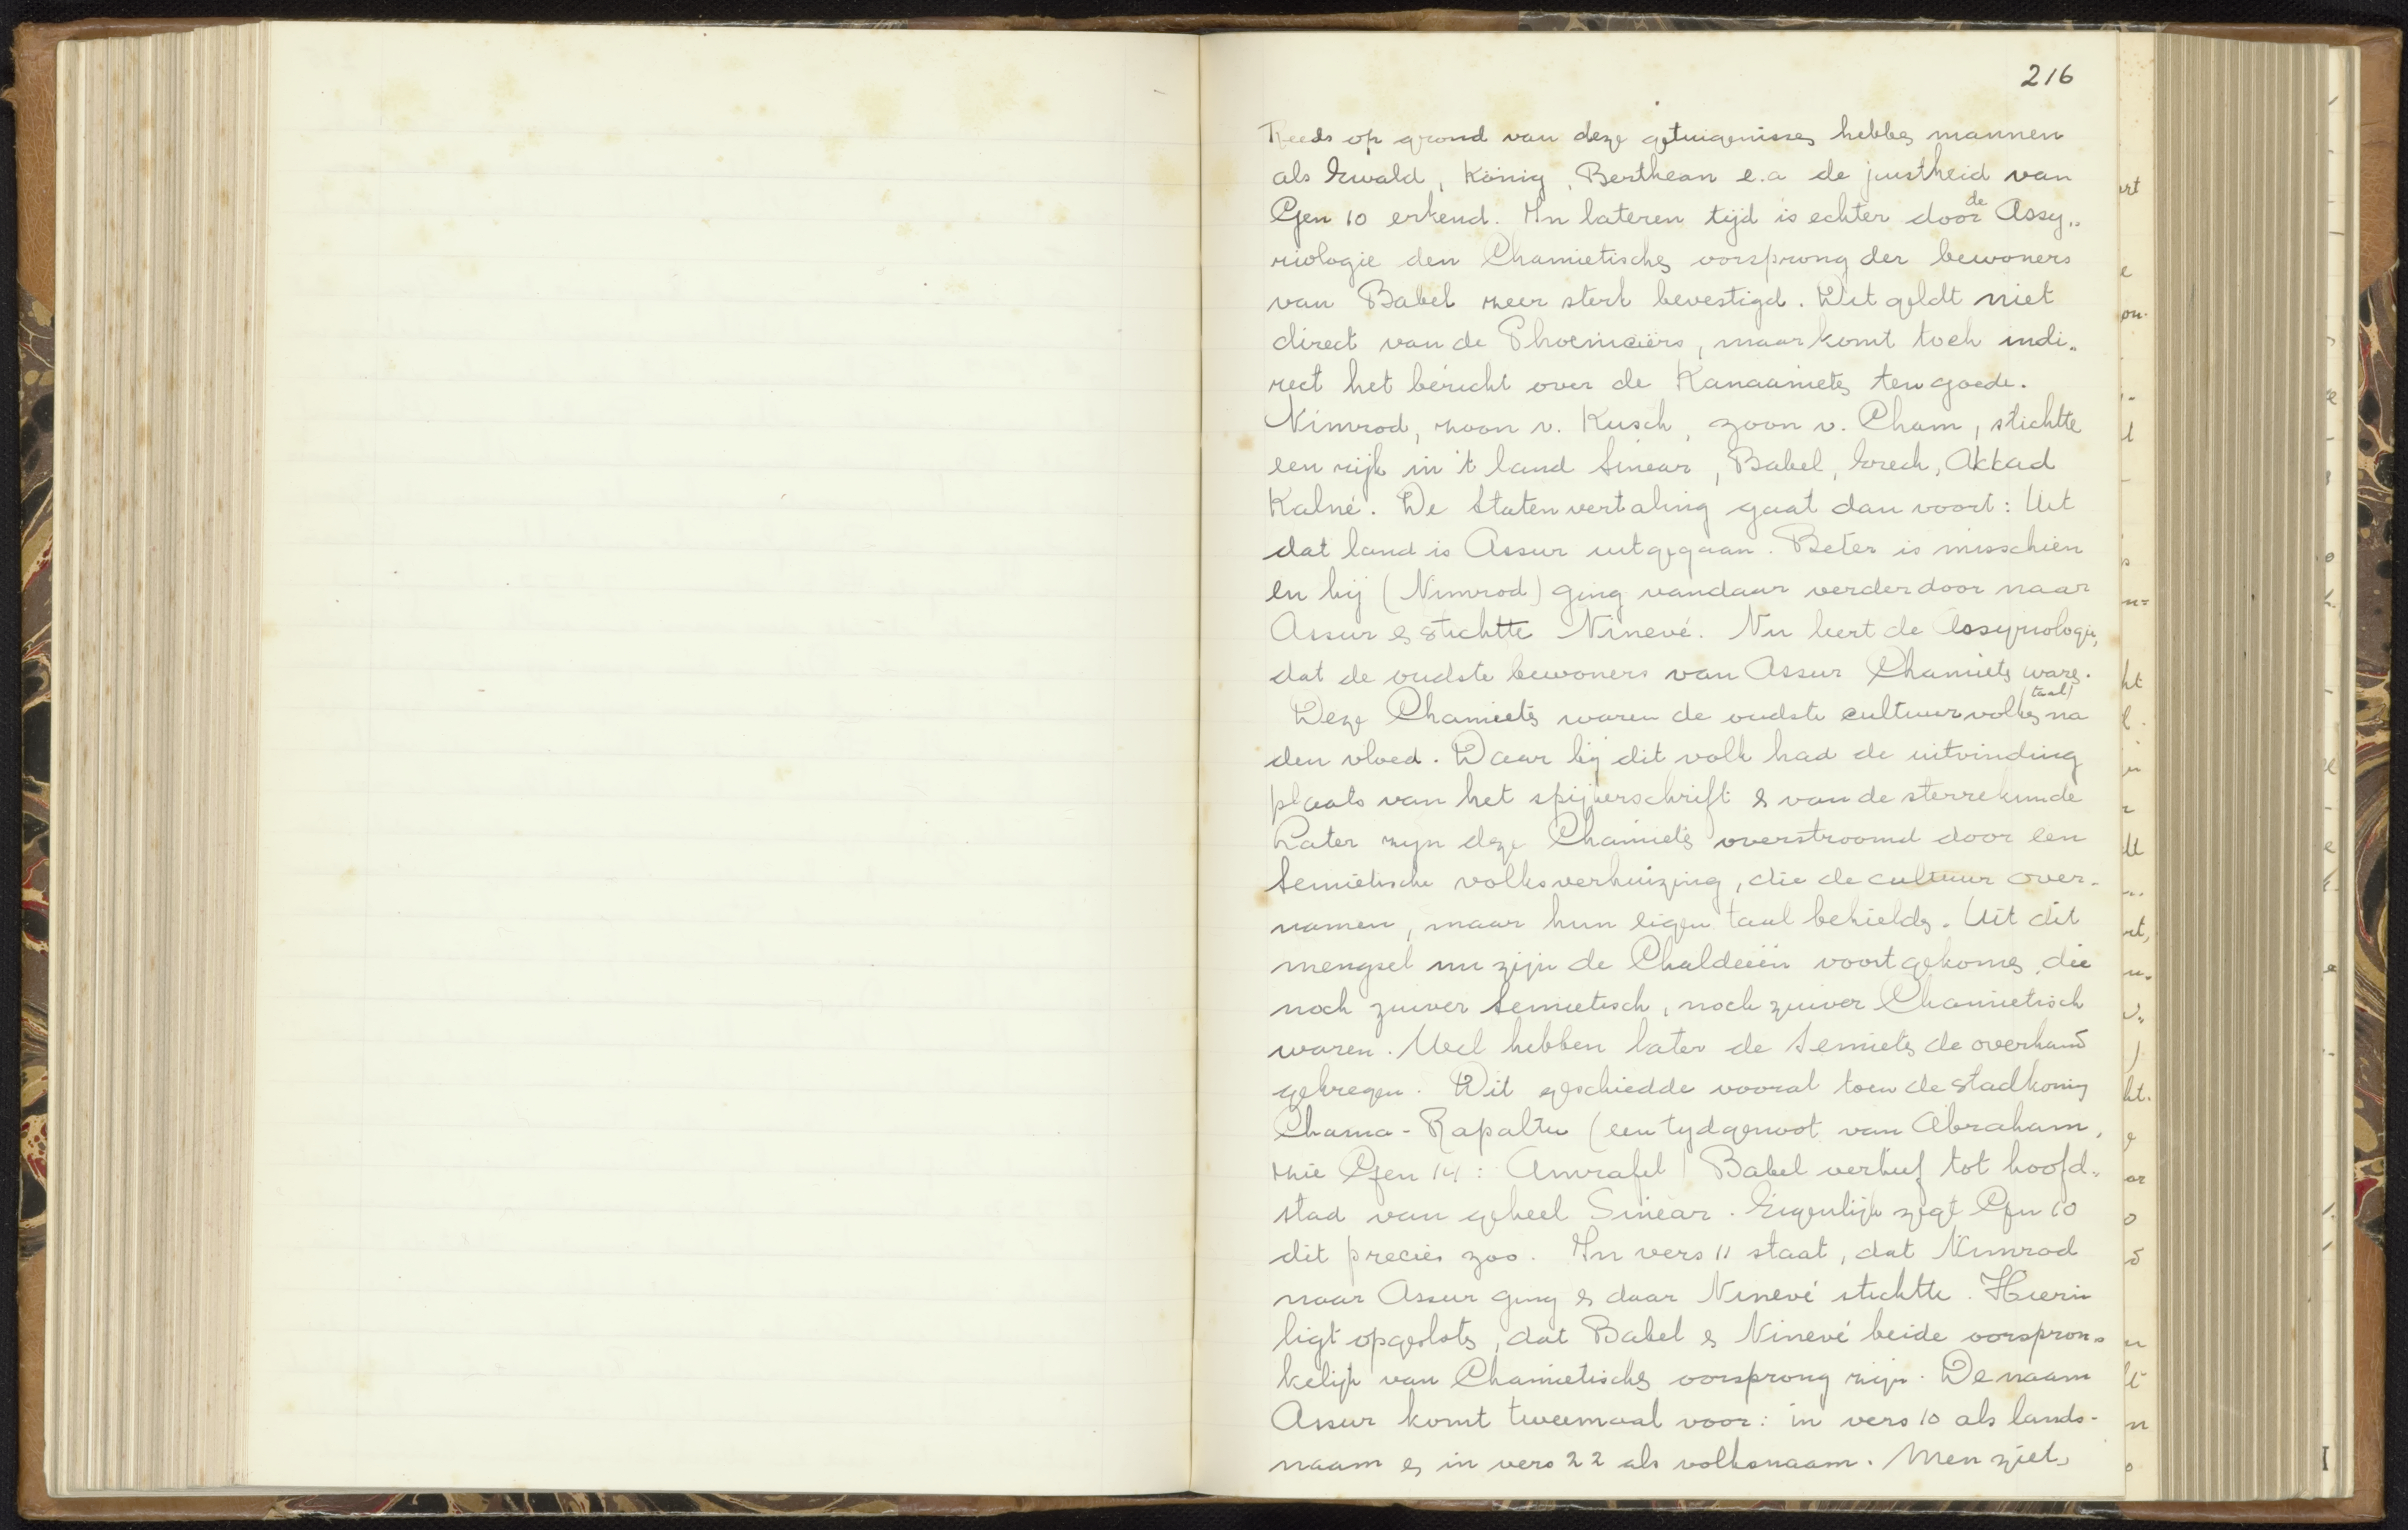 216
Reeds op grond van deze getuigenissen hebben mannen
als Ewald, König, Bertheau e.a de juistheid van
Gen 10 erkend. In lateren tijd is echter door de Assy„
riologie den Chamietischen oorsprong der bewoners
van Babel zeer sterk bevestigd. Dit geldt niet
direct van de Phoeniciërs, maar komt toch indi„
rect het bericht over de Kanaanieten ten goede.
Nimrod, zoon v. Kusch, zoon v. Cham, stichtte
een rijk in 't land Sinear, Babel, Erech, Akkad
Kalné. De Statenvertaling gaat dan voort: Uit
dat land is Assur uitgegaan. Beter is misschien
en hij (Nimrod) ging vandaar verder door naar
Assur en stichtte Ninevé. Nu leert de Assyriologie,
dat de oudste bewoners van Assur Chamieten waren.
Deze Chamieten waren de oudste cultuurvolken (taal) na
den vloed. Daar bij dit volk had de uitvinding
plaats van het spijkerschrift en van de sterrekunde
Later zijn deze Chamieten overstroomd door een
Semietische volksverhuizing, die de cultuur over-
namen, maar hun eigen taal behielden. Uit dit
mengsel nu zijn de Chaldeeën voortgekomen, die
noch zuiver Semietisch, noch zuiver Chamietisch
waren. Wel hebben later de Semieten de overhand
gekregen. Dit geschiedde vooral toen de stadkoning
Chama-Rapaltu (een tydgenoot van Abraham,
zie Gen 14: Amrafel) Babel verhief tot hoofd„
stad van geheel Sinear. Eigenlijk zegt Gen 10
dit precies zoo. In vers 11 staat, dat Nimrod
naar Assur ging en daar Ninevé stichtte. Hierin
ligt opgesloten, dat Babel en Ninevé beide oorspron„
kelijk van Chamietischen oorsprong zijn. De naam
Assur komt tweemaal voor: in vers 10 als lands-
naam en in vers 22 als volksnaam. Men ziet,